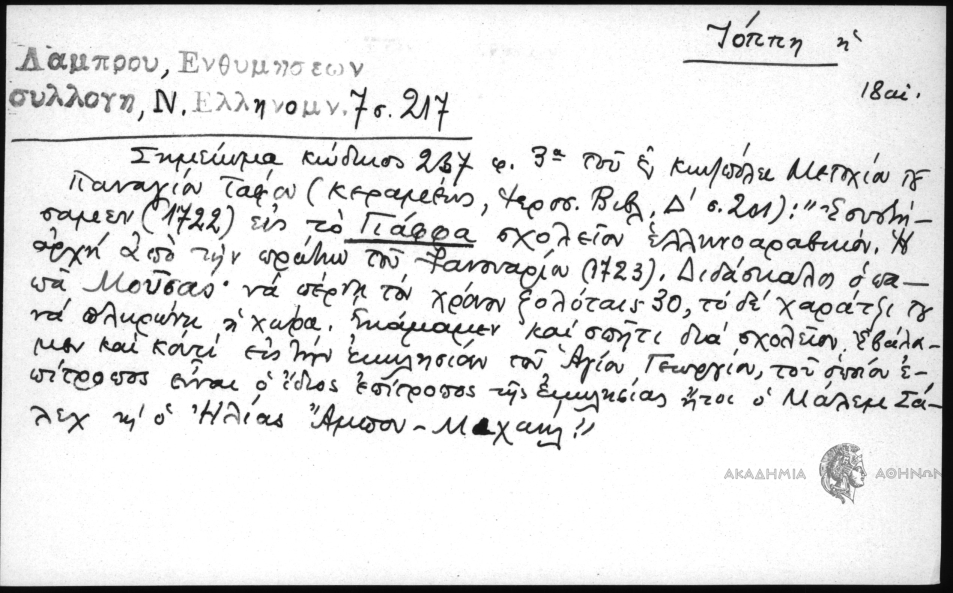 Ἰόππη ἡ
18 αἰ.
Λάμπρου, Ενθυμησεων
συλλογη, Ν. Ελληνομν. 7 σ. 217
Σημείωμα κώδικος 237 φ. 3α τοῦ ἐν Κων/πόλει Μετοχίου τοῦ
Παναγίου Τάφου (Κεραμέως, Ἱεροσ. Βιβλ. Δ' σ. 201): "Ἐσυστή-
σαμεν (1722) εἰς τὸ Γιάφφα σχολεῖον ἑλληνοαραβικόν. Ἡ
ἀρχὴ ἀπὸ τὴν πρώτην τοῦ Φανουαρίου (1723). Διδάσκαλος ὁ πα-
πᾶ Μούσας· νὰ πέρνῃ τὸν χρόνον ζολόταις 30, τὸ δὲ χαράτζι του
νὰ πληρώνῃ ἡ χώρα. Ἐκάμαμεν καὶ σπῆτι διὰ σχολεῖον. Ἐβάλα-
μεν καὶ κουτὶ εἰς τὴν ἐκκλησίαν τοῦ Ἁγίου Γεωργίου, τοῦ ὁποίου ἐ-
πίτροπος εἶναι ὁ ἴδιος ἐπίτροπος τῆς ἐκκλησίας ἤτοι ὁ Μάλεμ Σά-
λεχ κὶ ὁ Ἠλίας Ἄμπου-Μιχαήλ."
ΑΚΑΔΗΜΙΑ ΑΘΗΝΩΝ